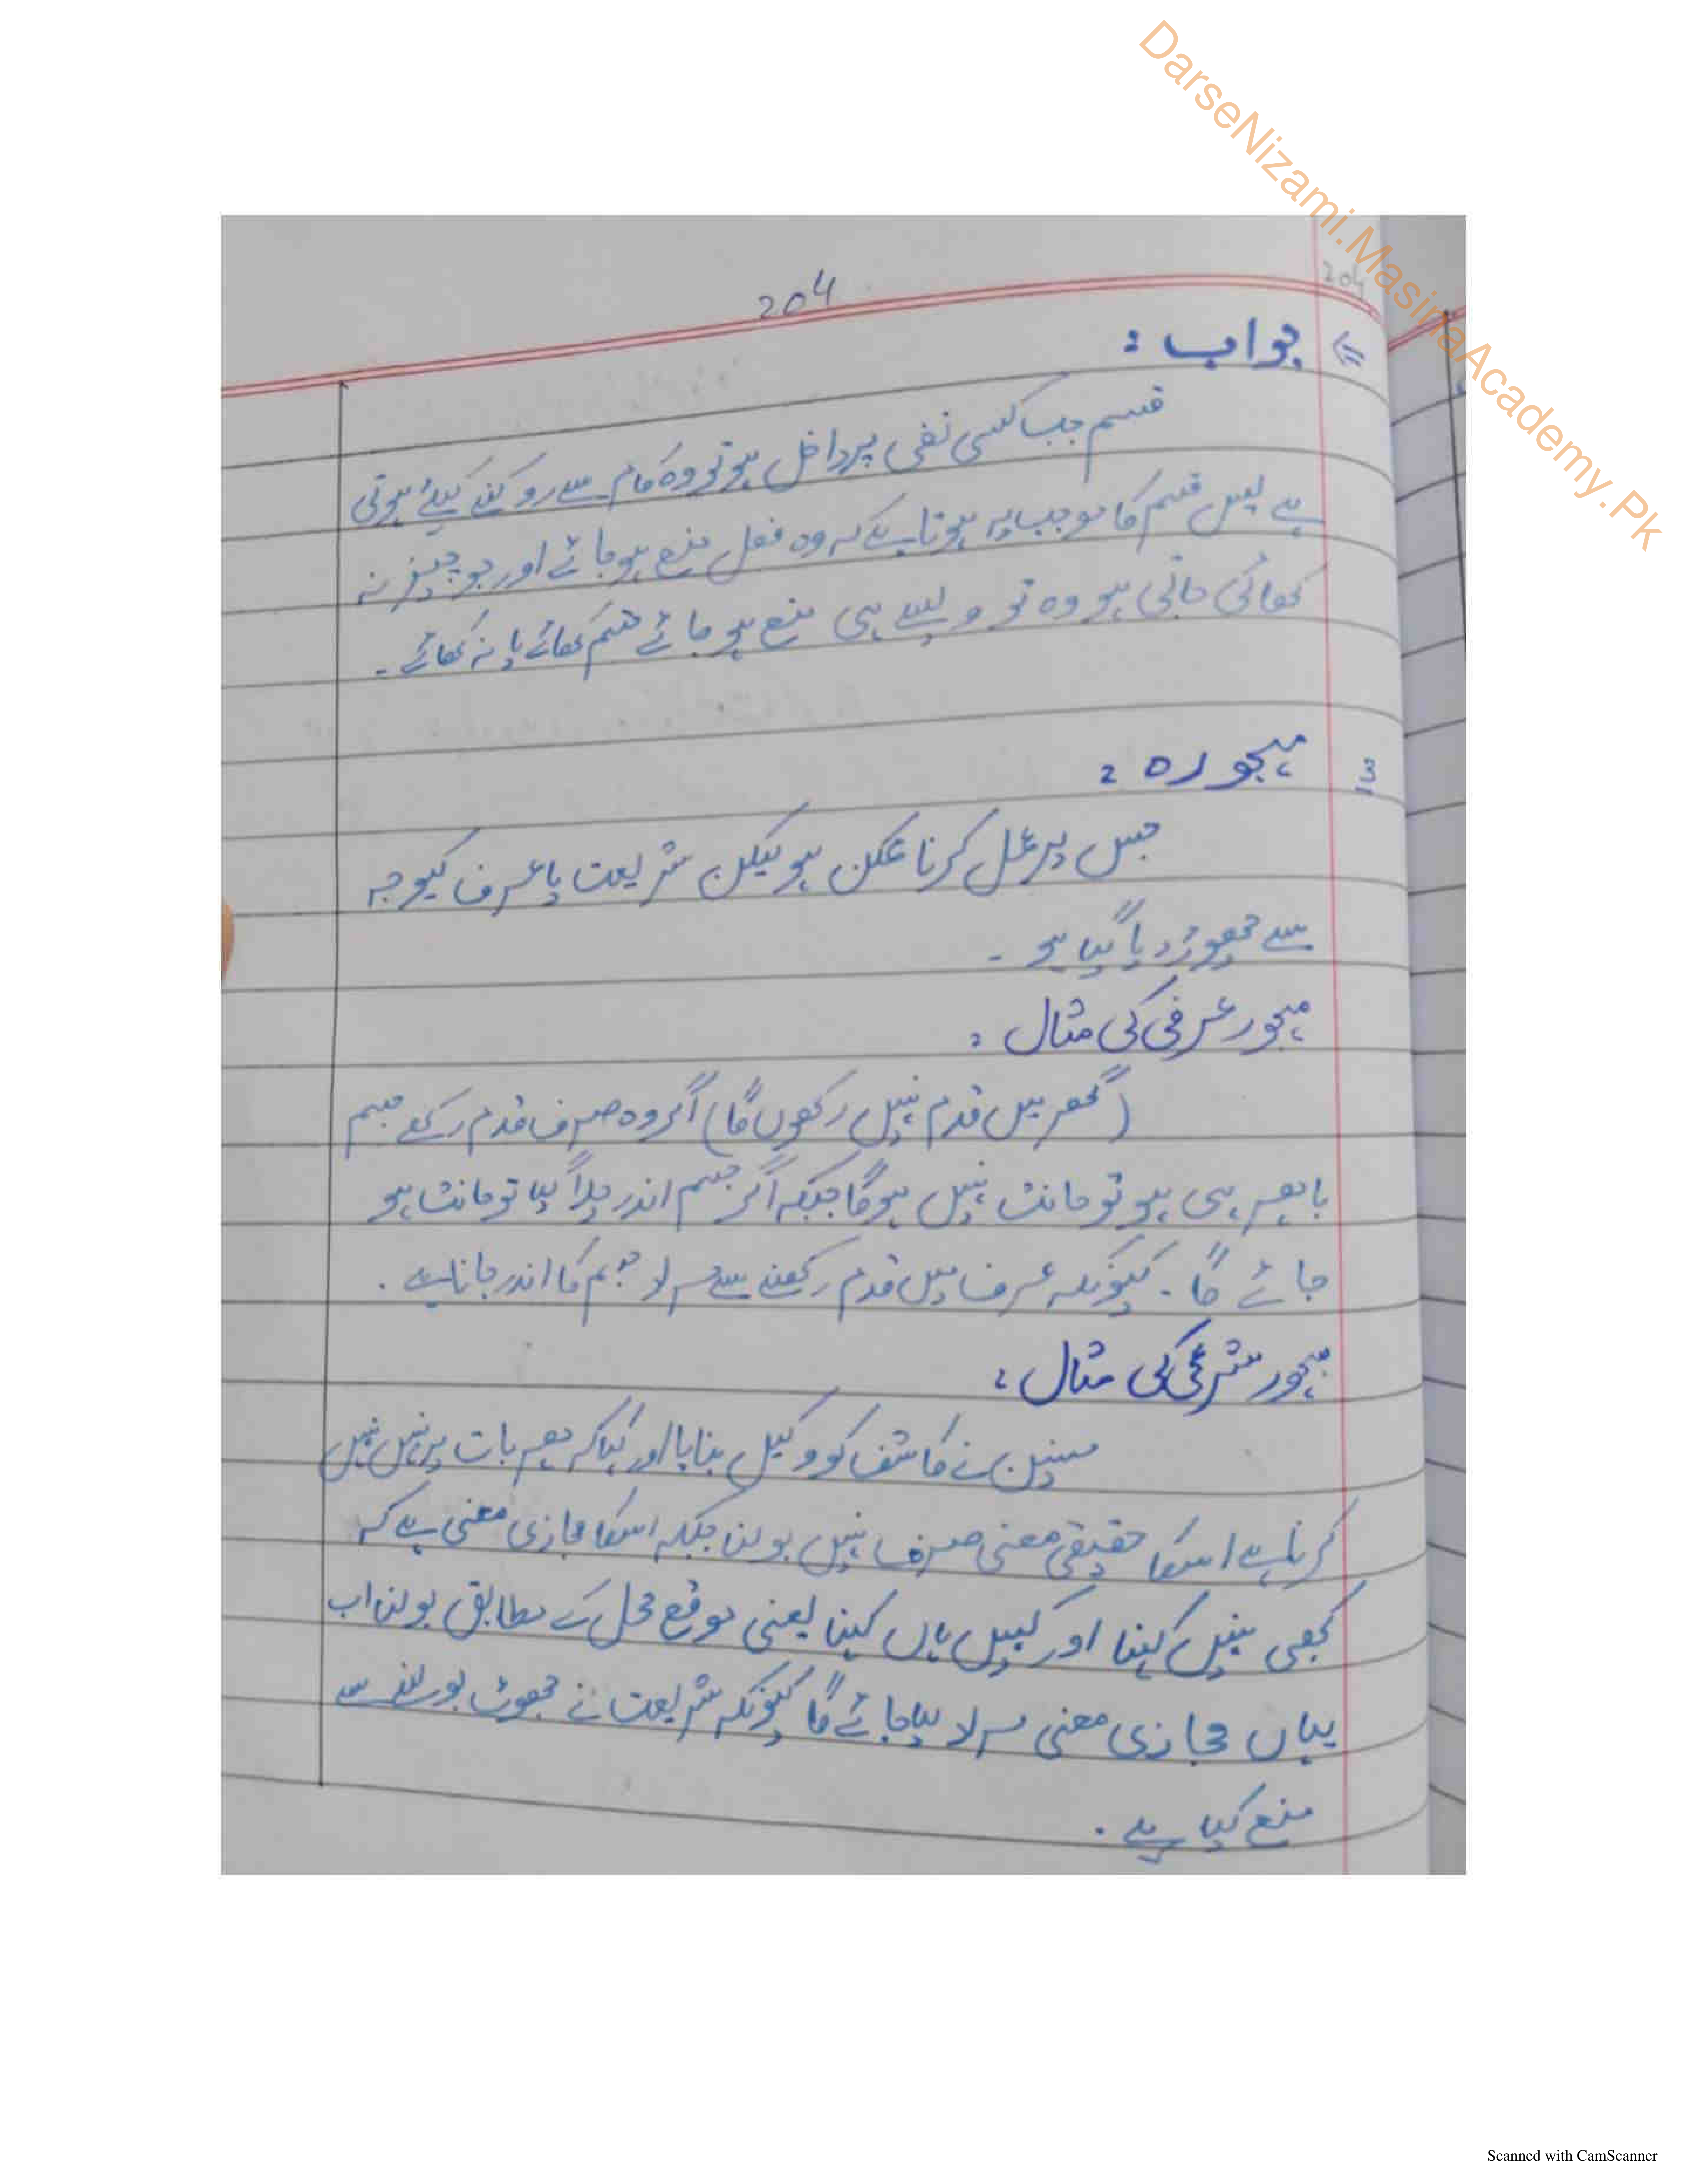 DarseNizami.MasinaAcademy.Pk
204
204
جواب :
قسم جب کسی نفی پر داخل ہو تو وہ کام سے روکنے کیلئے ہوتی
ہے پس قسم کا موجب یہ ہوتا ہے کہ وہ فعل منع ہو جائے اور جو چیز نہ
کھائی جاتی ہو وہ تو ویسے ہی منع ہو جائے قسم کھائے یا نہ کھائے ۔
3 مہجورہ :
جس پر عمل کرنا ممکن ہو لیکن شریعت یا عرف کیوجہ
سے چھوڑ دیا گیا ہو ۔
مہجور عرفی کی مثال :
(گھر میں قدم نہیں رکھوں گا) اگر وہ صرف قدم رکھے جسم
باہر ہی ہو تو حانث نہیں ہوگا جبکہ اگر جسم اندر چلا گیا تو حانث ہو
جائے گا ۔ کیونکہ عرف میں قدم رکھنے سے مراد جسم کا اندر جانا ہے ۔
مہجور شرعی کی مثال :
نے کاشف کو وکیل بنایا اور کہا کہ ہر بات پر نہیں نہیں
کرنا ہے اسکا حقیقی معنی صرف نہیں بولنا جبکہ اسکا مجازی معنی ہے کہ
کبھی نہیں کہنا اور کہیں ہاں کہنا یعنی موقع محل کے مطابق بولنا اب
یہاں مجازی معنی مراد لیا جائے گا کیونکہ شریعت نے جھوٹ بولنے سے
منع کیا ہے ۔
Scanned with CamScanner